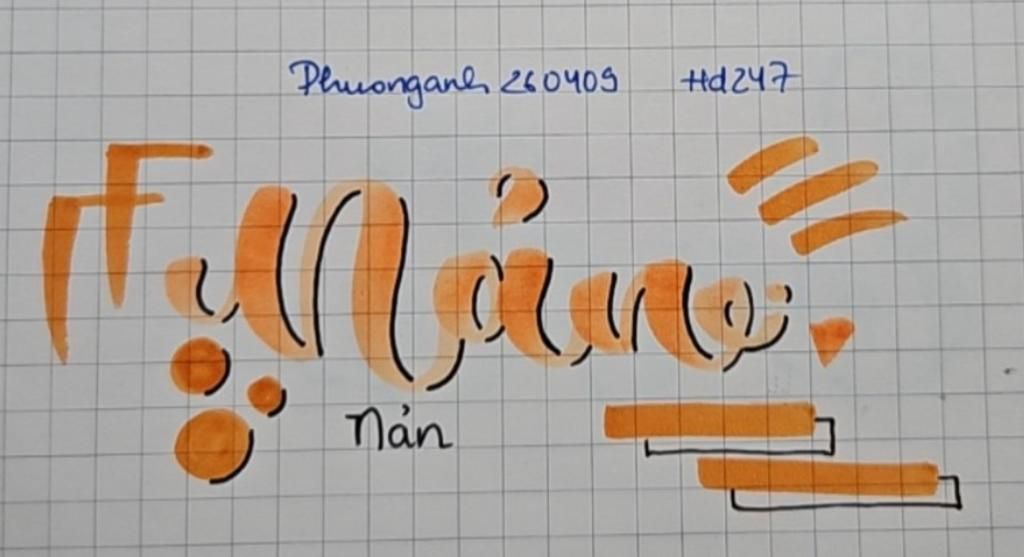 Phuonganh 260409 Hd247
Nản
nản